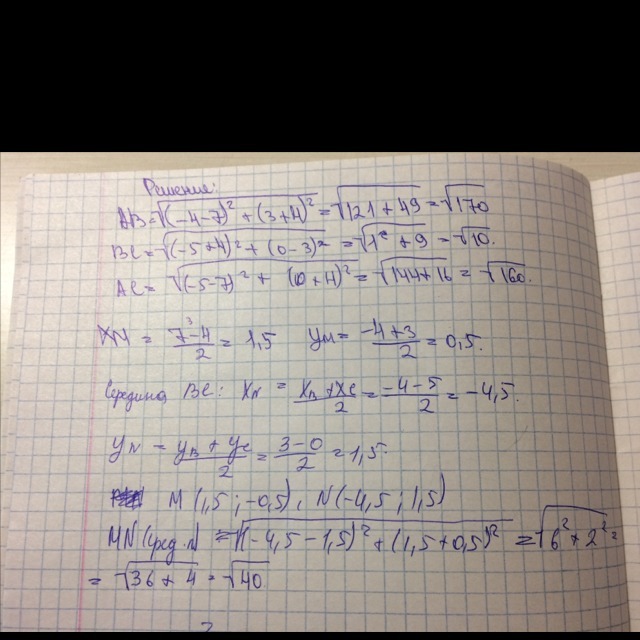 Решение:
AB=√((-4-7)²+(3+4)²)=√(121+49)=√170
BC=√((-5+4)²+(0-3)²)=√(1²+9)=√10.
AC=√((-5-7)²+(0+4)²)=√(144+16)=√160.
XM=(7-4)/2=1,5 YM=(-4+3)/2=0,5.
Середина BC: XN=(XB+XC)/2=(-4-5)/2=-4,5.
YN=(YB+YC)/2=(3-0)/2=1,5.
M(1,5;-0,5), N(-4,5;1,5)
MN(сред.л)=√((-4,5-1,5)²+(1,5+0,5)²)=√(6²+2²)=
=√(36+4)=√40